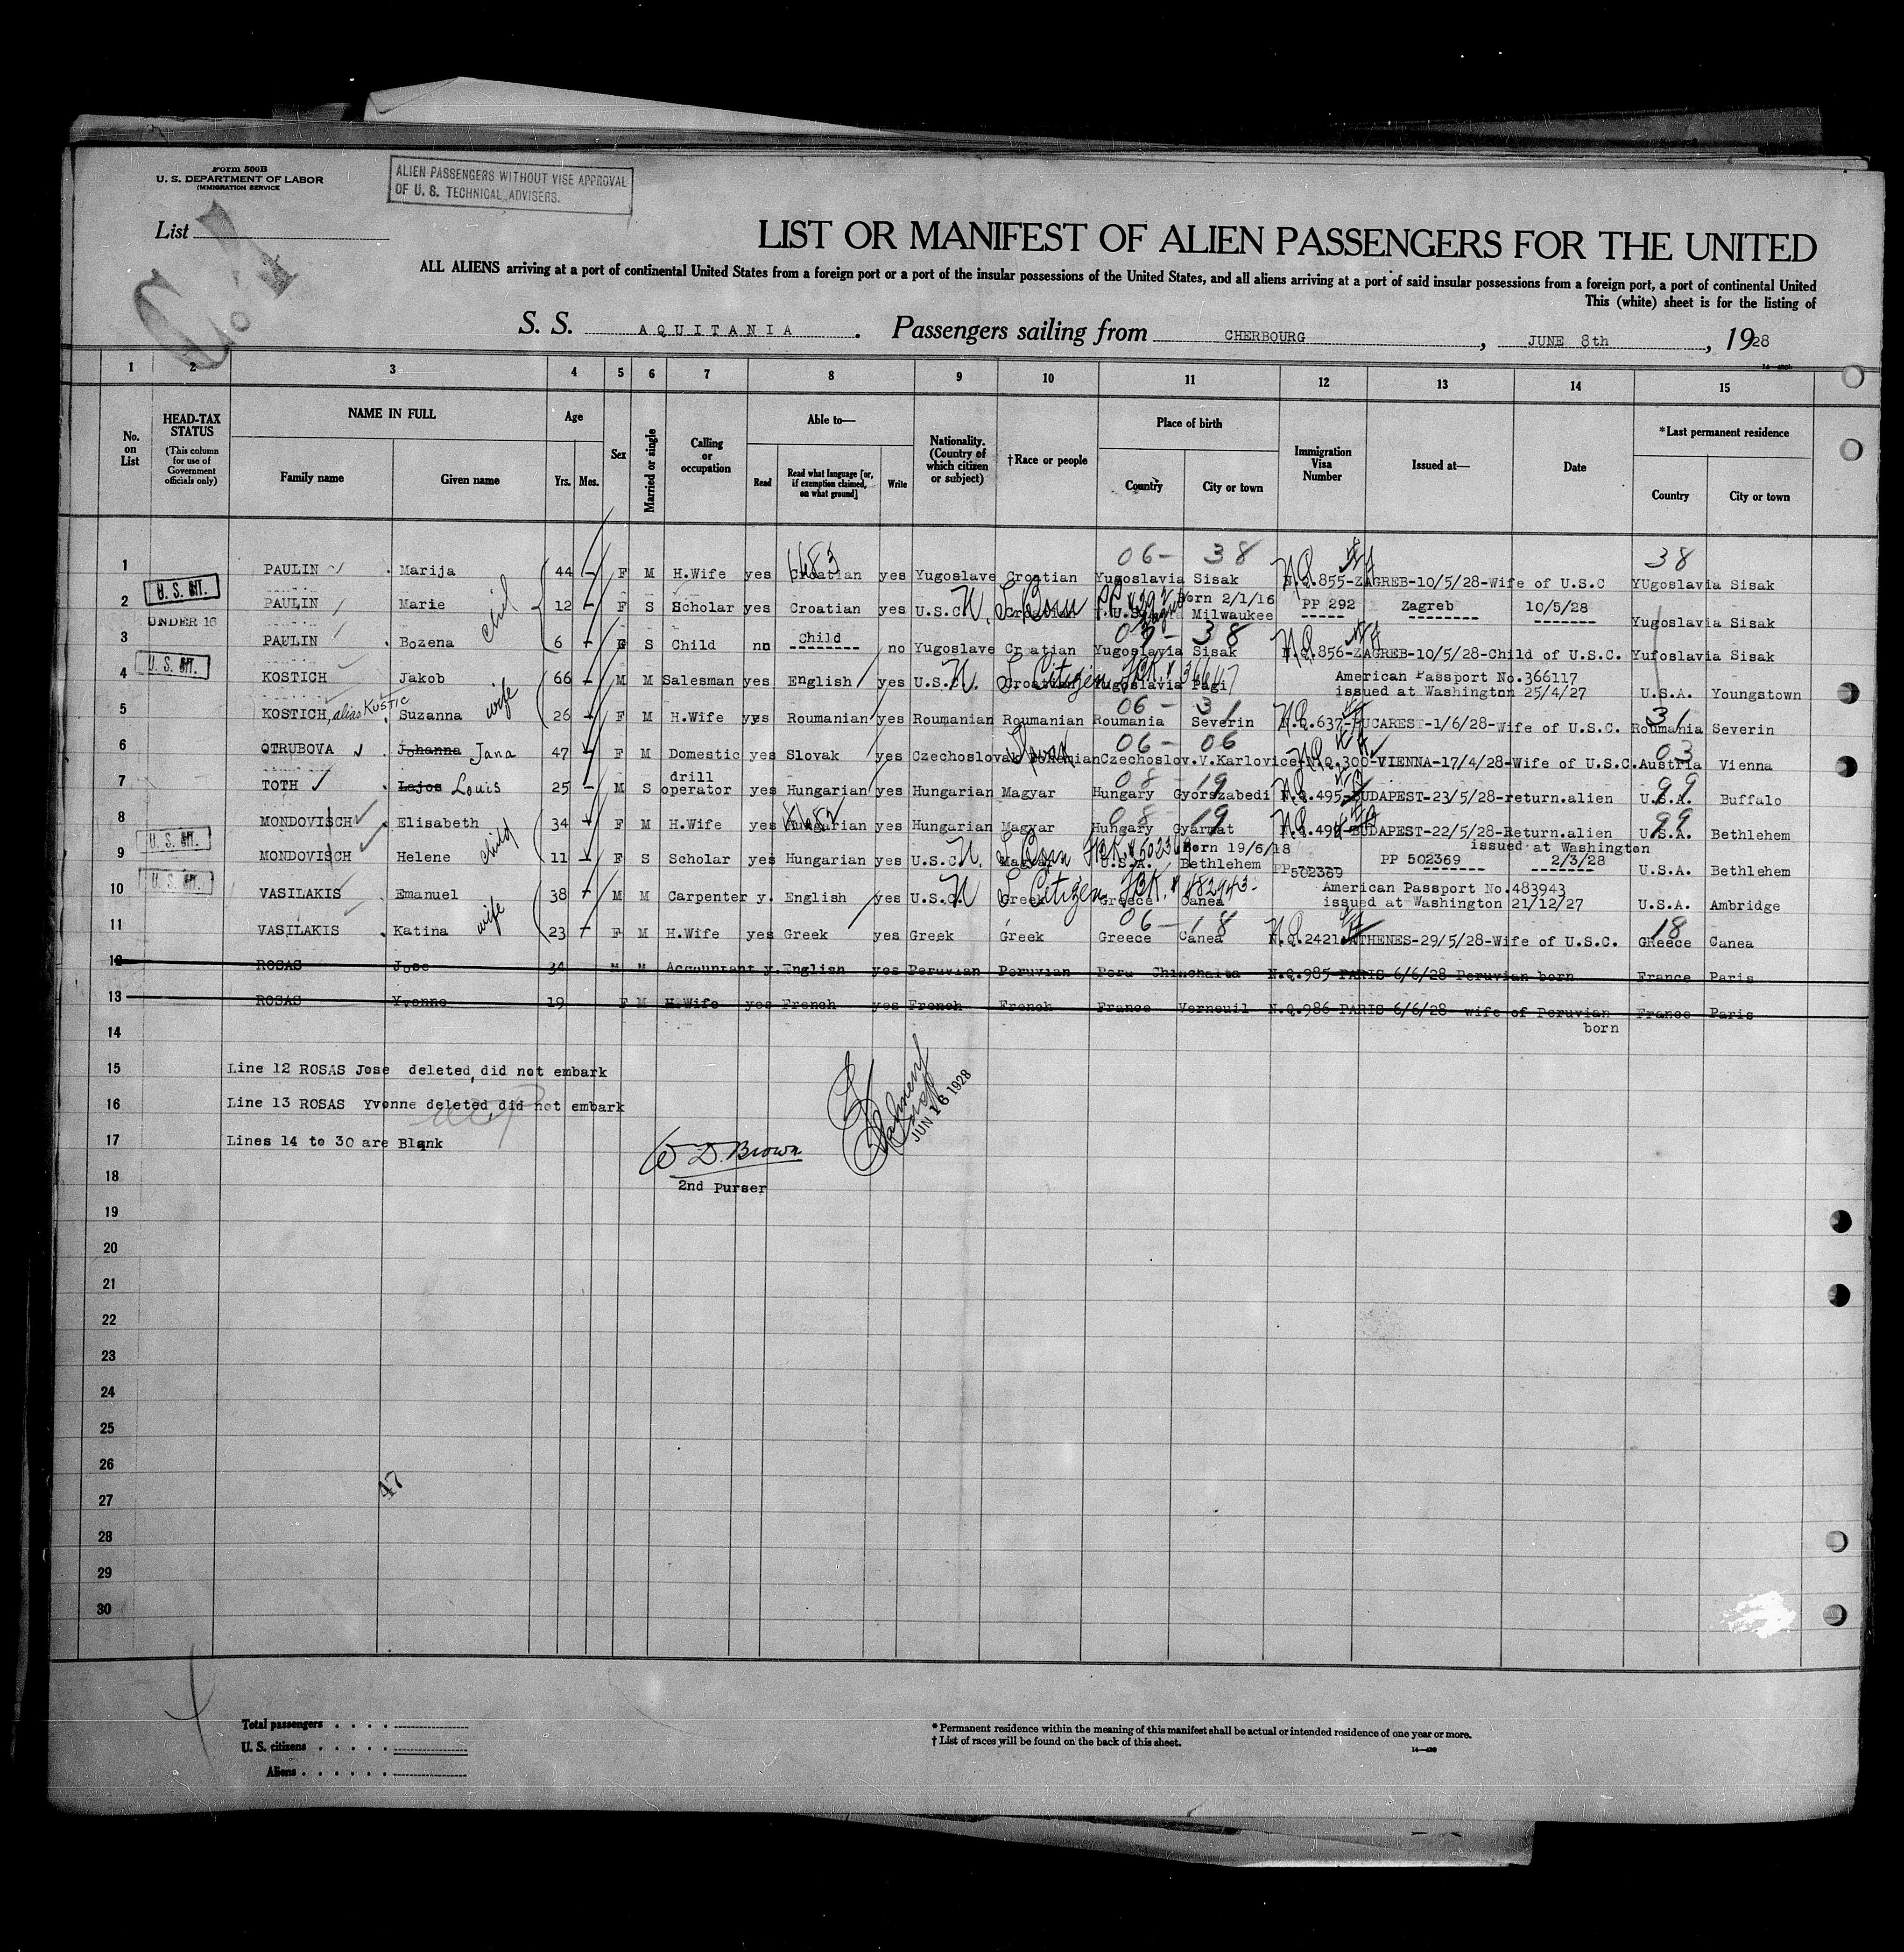 Form 500B
U. S. DEPARTMENT OF LABOR
IMMIGRATION SERVICE
ALIEN PASSENGERS WITHOUT VISE APPROVAL
OF U. S. TECHNICAL ADVISERS.
List
LIST OR MANIFEST OF ALIEN PASSENGERS FOR THE UNITED
ALL ALIENS arriving at a port of continental United States from a foreign port or a port of the insular possessions of the United States, and all aliens arriving at a port of said insular possessions from a foreign port, a port of continental United
This (white) sheet is for the listing of
S. S. AQUITANIA. Passengers sailing from CHERBOURG, JUNE 8th, 1928
1 2 3 4 5 6 7 8 9 10 11 12 13 14 15
No. on List
HEAD-TAX STATUS (This column for use of Government officials only)
NAME IN FULL
Family name Given name
Age
Yrs. Mos.
Sex
Married or single
Calling or occupation
Able to—
Read Read what language [or, if exemption claimed, on what ground] Write
Nationality. (Country of which citizen or subject)
†Race or people
Place of birth
Country City or town
Immigration Visa Number
Issued at—
Date
*Last permanent residence
Country City or town
06- 38 38
1 PAULIN Marija 44 - F M H.Wife yes Croatian yes Yugoslave Croatian Yugoslavia Sisak N.Q.855-ZAGREB-10/5/28-Wife of U.S.C YUgoslavia Sisak
U. S. CIT.
2 PAULIN Marie 12 - F S Scholar yes Croatian yes U.S.C. Croatian U.S.A. Born 2/1/16 Milwaukee PP 292 Zagreb 10/5/28 Yugoslavia Sisak
UNDER 16
3 PAULIN Bozena 6 - F S Child no Child no Yugoslave Croatian Yugoslavia Sisak N.Q.856-ZAGREB-10/5/28-Child of U.S.C. Yufoslavia Sisak
U. S. CIT.
4 KOSTICH Jakob 66 - M M Salesman yes English yes U.S.C. Croatian Yugoslavia Pagi American Passport No.366117 issued at Washington 25/4/27 U.S.A. Youngstown
06- 31 31
5 KOSTICH, alias KUSTIC Suzanna wife 26 - F M H.Wife yes Roumanian yes Roumanian Roumanian Roumania Severin N.Q.637-BUCAREST-1/6/28-Wife of U.S.C. Roumania Severin
06- 06 03
6 OTRUBOVA Johanna Jana 47 - F M Domestic yes Slovak yes Czechoslovak Bohemian Czechoslov. V.Karlovice N.Q.300-VIENNA-17/4/28-Wife of U.S.C. Austria Vienna
08- 19 99
7 TOTH Lajos Louis 25 - M S drill operator yes Hungarian yes Hungarian Magyar Hungary Gyorszabedi N.Q.495-BUDAPEST-23/5/28-return.alien U.S.A. Buffalo
08- 19 99
8 MONDOVISCH Elisabeth 34 - F M H.Wife yes Hungarian yes Hungarian Magyar Hungary Gyarmat N.Q.494-BUDAPEST-22/5/28-Return.alien U.S.A. Bethlehem
U. S. CIT.
9 MONDOVISCH Helene child 11 - F S Scholar yes Hungarian yes U.S.C. Magyar U.S.A. Born 19/6/18 Bethlehem PP 502369 issued at Washington PP 502369 2/3/28 U.S.A. Bethlehem
U. S. CIT.
10 VASILAKIS Emanuel 38 - M M Carpenter y. English yes U.S.C. Greek Citizen Greece Canea American Passport No.483943 issued at Washington 21/12/27 U.S.A. Ambridge
06- 18 18
11 VASILAKIS Katina wife 23 - F M H.Wife yes Greek yes Greek Greek Greece Canea N.Q.2421-ATHENES-29/5/28-Wife of U.S.C. GReece Canea
12 ROSAS Jose 34 M M Accountant y. English yes Peruvian Peruvian Peru Chinchaita N.Q.985-PARIS 6/6/28 Peruvian born France Paris
13 ROSAS Yvonne 19 F M H.Wife yes French yes French French France Verneuil N.Q.986-PARIS 6/6/28- wife of Peruvian born France Paris
14
15 Line 12 ROSAS Jose deleted, did not embark
16 Line 13 ROSAS Yvonne deleted did not embark
17 Lines 14 to 30 are Blank
JUN 16 1928
W D. Brown
2nd Purser
18
19
20
21
22
23
24
25
26
47
27
28
29
30
Total passengers . . . .
U. S. citizens . . . . .
Aliens . . . . . .
* Permanent residence within the meaning of this manifest shall be actual or intended residence of one year or more.
† List of races will be found on the back of this sheet.
14—430